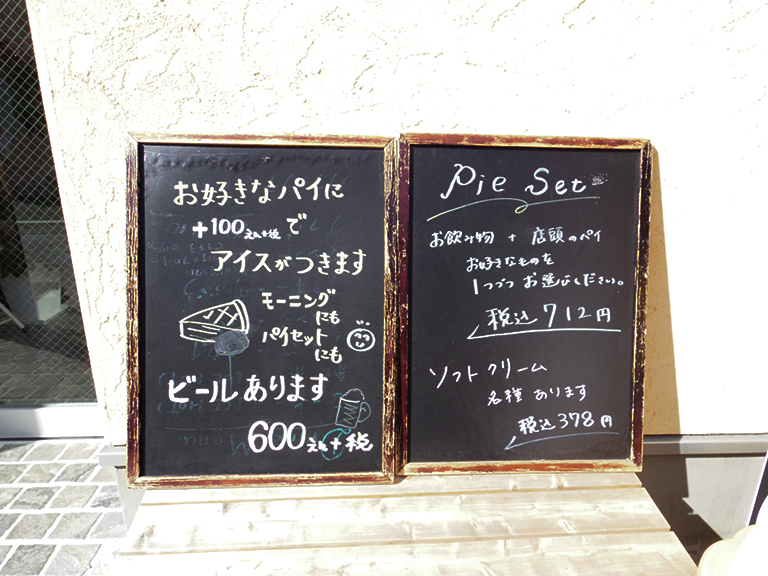 お好きなパイに
+100えん+税で
アイスがつきます
モーニング
にも
パイセット
にも
ビールあります
600えん+税
Pie Set
お飲み物 + 店頭のパイ
お好きなものを
1つづつお選びください。
税込712円
ソフトクリーム
各種あります
税込378円